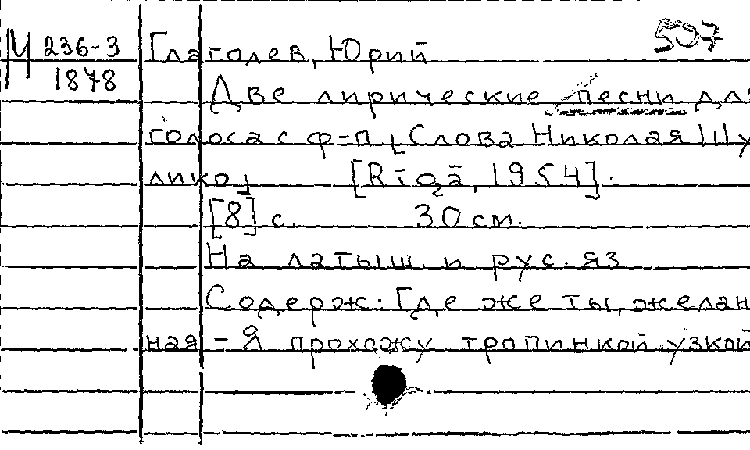 М 236-3 Глаголев, Юрий 507
1878
Две лирические песни для
голоса с ф=п [Слова Николая Шу
лико] [Rīgā, 1954].
[8] с. 30 см.
На латыш и рус. яз
Содерж: Где же ты, желан
ная - Я прохожу тропинкой узкой